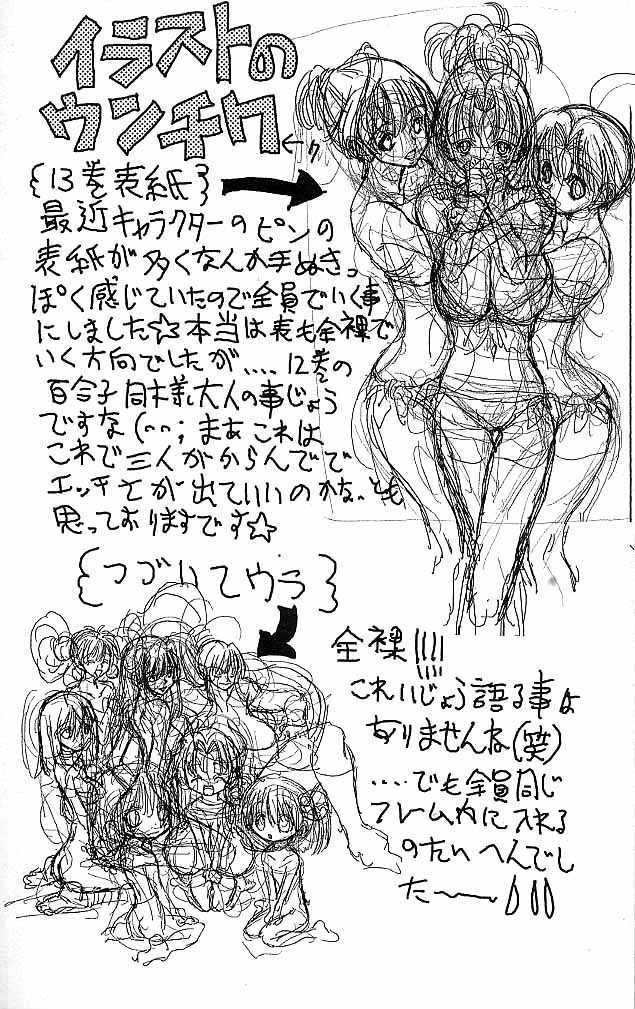 イラストの
ウンチク
{13巻表紙}
最近キャラクターのピンの
表紙が多くなんか手ぬきっ
ぽく感じていたので全員でいく事
にしました☆本当は表も全裸で
いく方向でしたが....12巻の
百合子同様大人の事じょう
ですな(^^;まあこれは
これで三人がからんでて
エッチさが出ていいのかな、とも
思っておりますです☆
{つづいてウラ}
全裸!!!!
これいじょう語る事は
ありませんね(笑)
....でも全員同じ
フレーム内に入れる
のたいへんでし
た〜